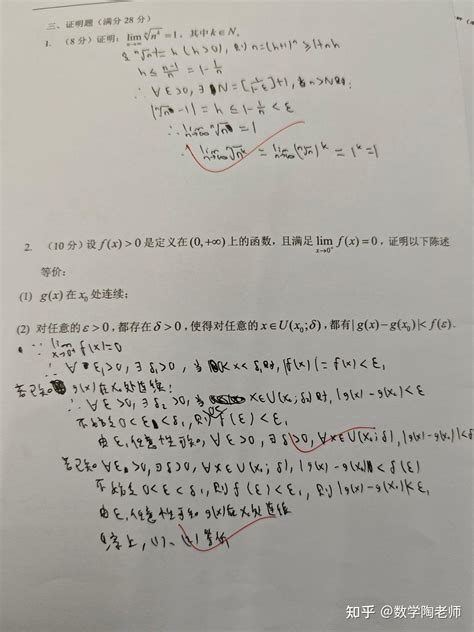 三、证明题（满分 28 分）
1. （8 分）证明：lim_{n→∞} ⁿ√(n^k) = 1，其中 k∈N。
ⁿ√n - 1 = h (h>0), 则 n=(h+1)ⁿ ≥ 1+nh
h ≤ (n-1)/n = 1 - 1/n
∴ ∀ε>0, ∃N=[1/(1-ε)]+1, 当n>N时,
|ⁿ√n - 1| = h ≤ 1 - 1/n < ε
∴ lim_{n→∞} ⁿ√n = 1
∴ lim_{n→∞} ⁿ√(n^k) = lim_{n→∞} (ⁿ√n)^k = 1^k = 1
2. （10 分）设 f(x)>0 是定义在 (0,+∞) 上的函数，且满足 lim_{x→0⁺} f(x)=0，证明以下陈述
等价：
(1) g(x) 在 x₀ 处连续；
(2) 对任意的 ε>0，都存在 δ>0，使得对任意的 x∈U(x₀;δ)，都有 |g(x)-g(x₀)|<f(ε).
∵ lim_{x→0⁺} f(x)=0
∴ ∀ε₁>0, ∃δ₁>0, 当0<x<δ₁时, |f(x)|=f(x)<ε₁
若已知 g(x)在x₀处连续:
∴ ∀ε>0, ∃δ₂>0, 当 x∈U(x₀;δ₂)时, |g(x)-g(x₀)|<ε
不妨令0<ε<δ₁, 则f(ε)<ε₁
由ε₁任意性可知, ∀ε>0, ∃δ>0, ∀x∈U(x₀;δ), |g(x)-g(x₀)|<
若已知∀ε>0, ∃δ>0, ∀x∈U(x₀;δ), |g(x)-g(x₀)|<f(ε)
不妨令0<ε<δ₁, 则f(ε)<ε₁, 则|g(x)-g(x₀)|<ε₁
由ε₁任意性可知g(x)在x₀处连续
综上, (1)、(2)等价
知乎 @数学陶老师